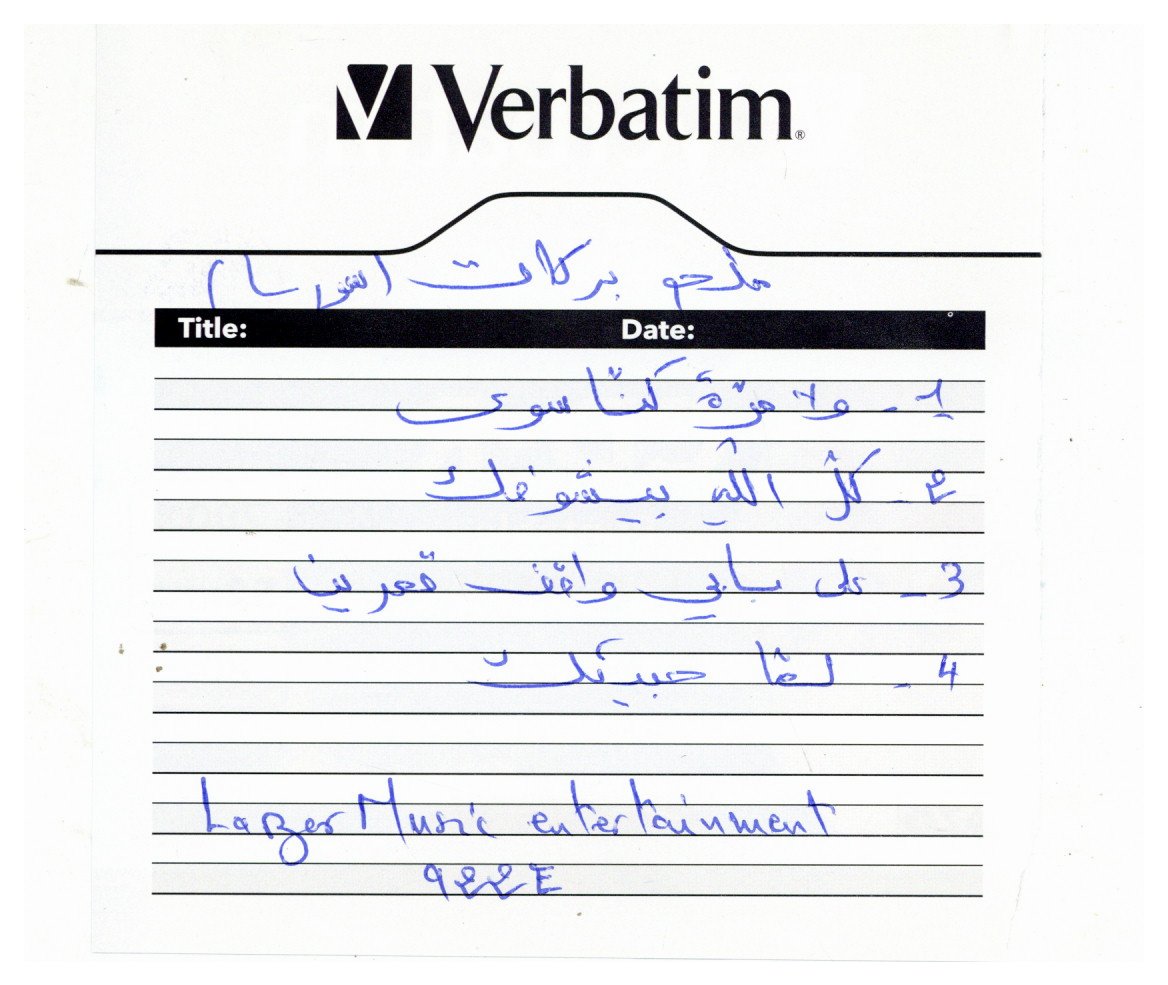 Verbatim®
ملحم بركات
Title: Date:
1 - ولا مرّة كنّا سوى
2 - كلّ اللي بيشوفك
3 - على بابي واقف قمرين
4 - لمّا حبيتك
Lazer Music entertainment
922E